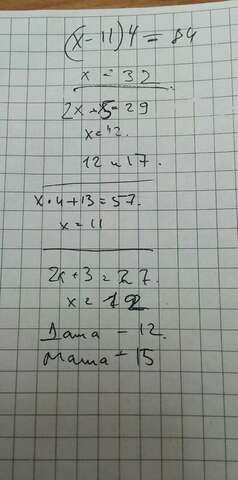 (x-11)4=84
x=32
2x+5=29
x=12.
12 и 17.
x·4+13=57.
x=11
2x+3=27.
x=12
Даша - 12.
Маша - 15